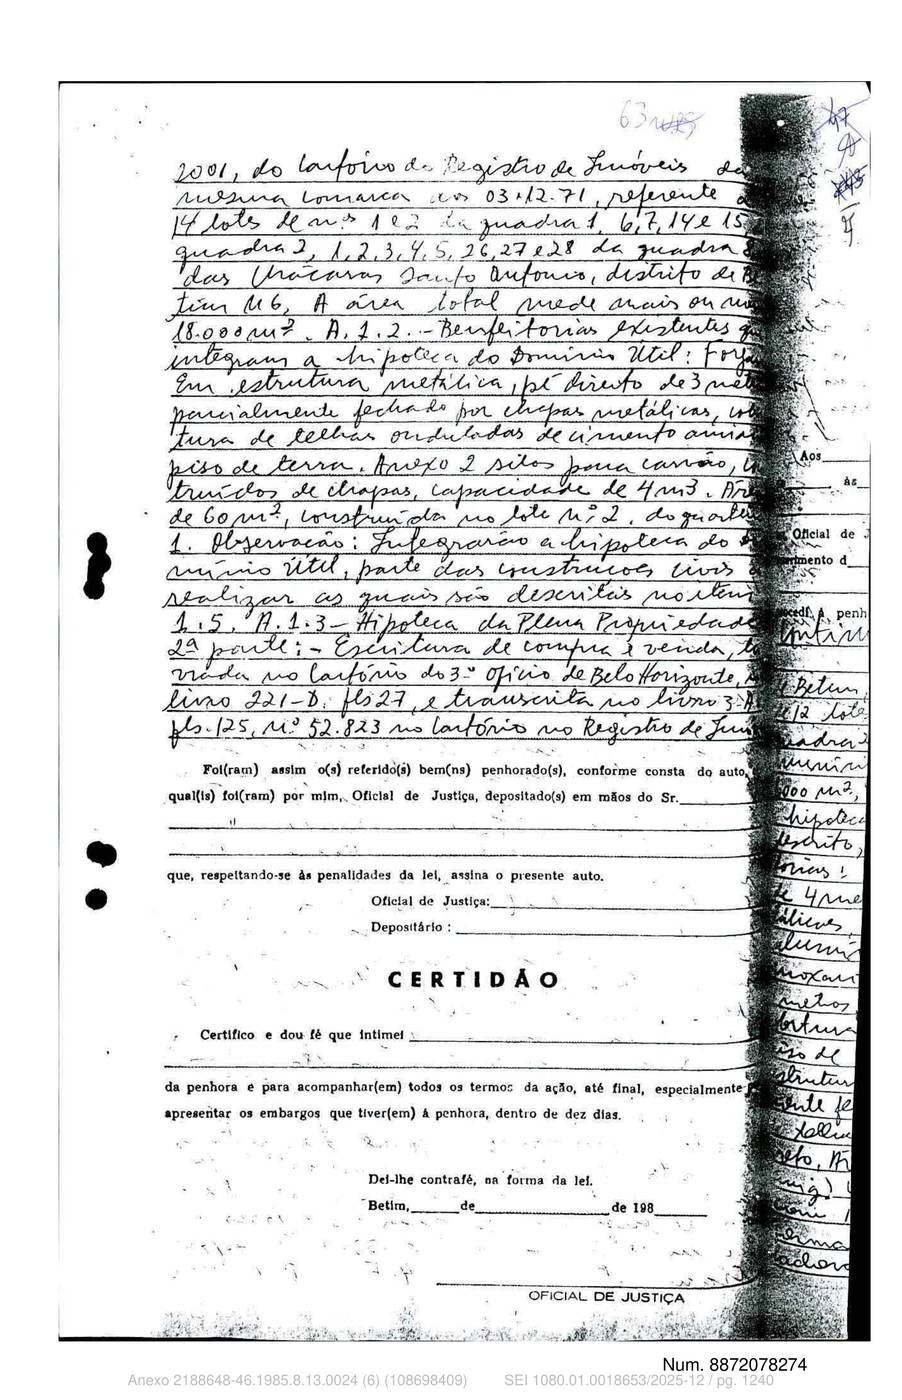 63
2001, do Cartório do Registro de Imóveis da
mesma comarca aos 03.12.71, referente a
14 lotes de nºs 1 e 2 da quadra 1, 6, 7, 14 e 15,
quadra 2, 1, 2, 3, 4, 5, 26, 27 e 28 da quadra
das Chácaras Santo Antonio, distrito de Be
tim MG, A área total mede mais ou me
18.000m². A.1.2. - Benfeitorias existentes q
integram a hipoteca do Domínio Útil: Forja
Em estrutura metálica, pé direito de 3 met
parcialmente fechado por chapas metálicas, cob
tura de telhas onduladas de cimento amian
piso de terra. Anexo 2 silos para carvão,
truídos de chapas, capacidade de 4m3. Áre
de 60m², construída no lote nº 2. do quartei
1. Observação: Integrarão a hipoteca do
mínio Útil, parte das construções civis a
realizar as quais são descritas no item
1.5. A.1.3 - Hipoteca da Plena Propriedade
2ª parte: - Escritura de compra e venda,
vrada no Cartório do 3º Ofício de Belo Horizonte,
livro 221-D. fls 27, e transcrita no livro 3-A
fls. 125, nº 52.823 no Cartório no Registro de Imó
Foi(ram) assim o(s) referido(s) bem(ns) penhorado(s), conforme consta do auto,
qual(is) foi(ram) por mim, Oficial de Justiça, depositado(s) em mãos do Sr.
que, respeitando-se às penalidades da lei, assina o presente auto.
Oficial de Justiça:
Depositário :
CERTIDÃO
Certifico e dou fé que intimei
da penhora e para acompanhar(em) todos os termos da ação, até final, especialmente
apresentar os embargos que tiver(em) à penhora, dentro de dez dias.
Dei-lhe contrafé, na forma da lei.
Betim, de de 198
OFICIAL DE JUSTIÇA
Aos
às
Oficial de J
penh
Betim,
12 lote
000 m²,
hipoteca
descrito,
de 4 me
metros
piso de
Num. 8872078274
Anexo 2188648-46.1985.8.13.0024 (6) (108698409) SEI 1080.01.0018653/2025-12 / pg. 1240